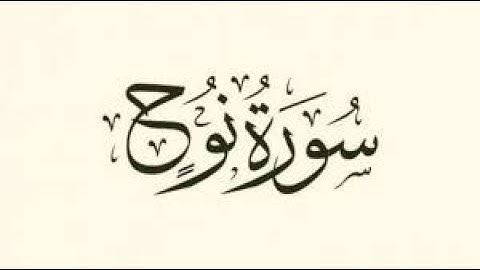 سُورَةُ نُوحٍ